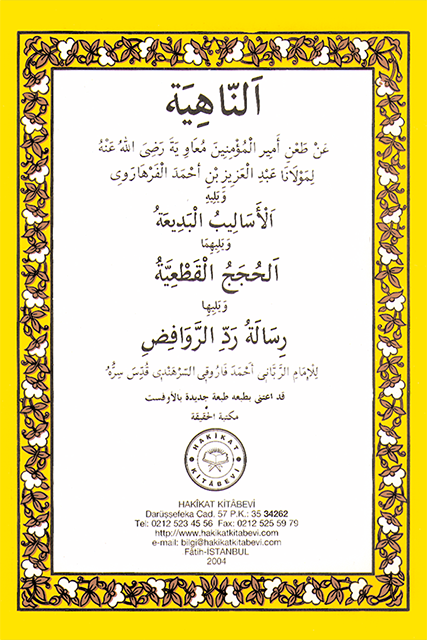 اَلنَّاهِيَة
عَنْ طَعْنِ أَمِيرِ الْمُؤْمِنِينَ مُعَاوِيَةَ رَضِىَ اللهُ عَنْهُ
لِمَوْلَانَا عَبْدِ الْعَزِيزِ بْنِ أَحْمَدَ الْفَرْهَارَوِى
وَيَلِيهِ
اَلْأَسَالِيبُ الْبَدِيعَةُ
وَيَلِيهِمَا
اَلْحُجَجُ الْقَطْعِيَّةُ
وَيَلِيهَا
رِسَالَةُ رَدِّ الرَّوَافِضِ
لِلْإِمَامِ الرَّبَّانِى أَحْمَدَ فَارُوقِى السَّرْهَنْدِى قُدِّسَ سِرُّهُ
قد اعتنى بطبعه طبعة جديدة بالأوفست
مكتبة الحقيقة
HAKİKAT
KİTÂBEVİ
HAKÎKAT KİTÂBEVİ
Darüşşefeka Cad. 57 P.K.: 35 34262
Tel: 0212 523 45 56 Fax: 0212 525 59 79
http://www.hakikatkitabevi.com
e-mail: bilgi@hakikatkitabevi.com
Fâtih-ISTANBUL
2004